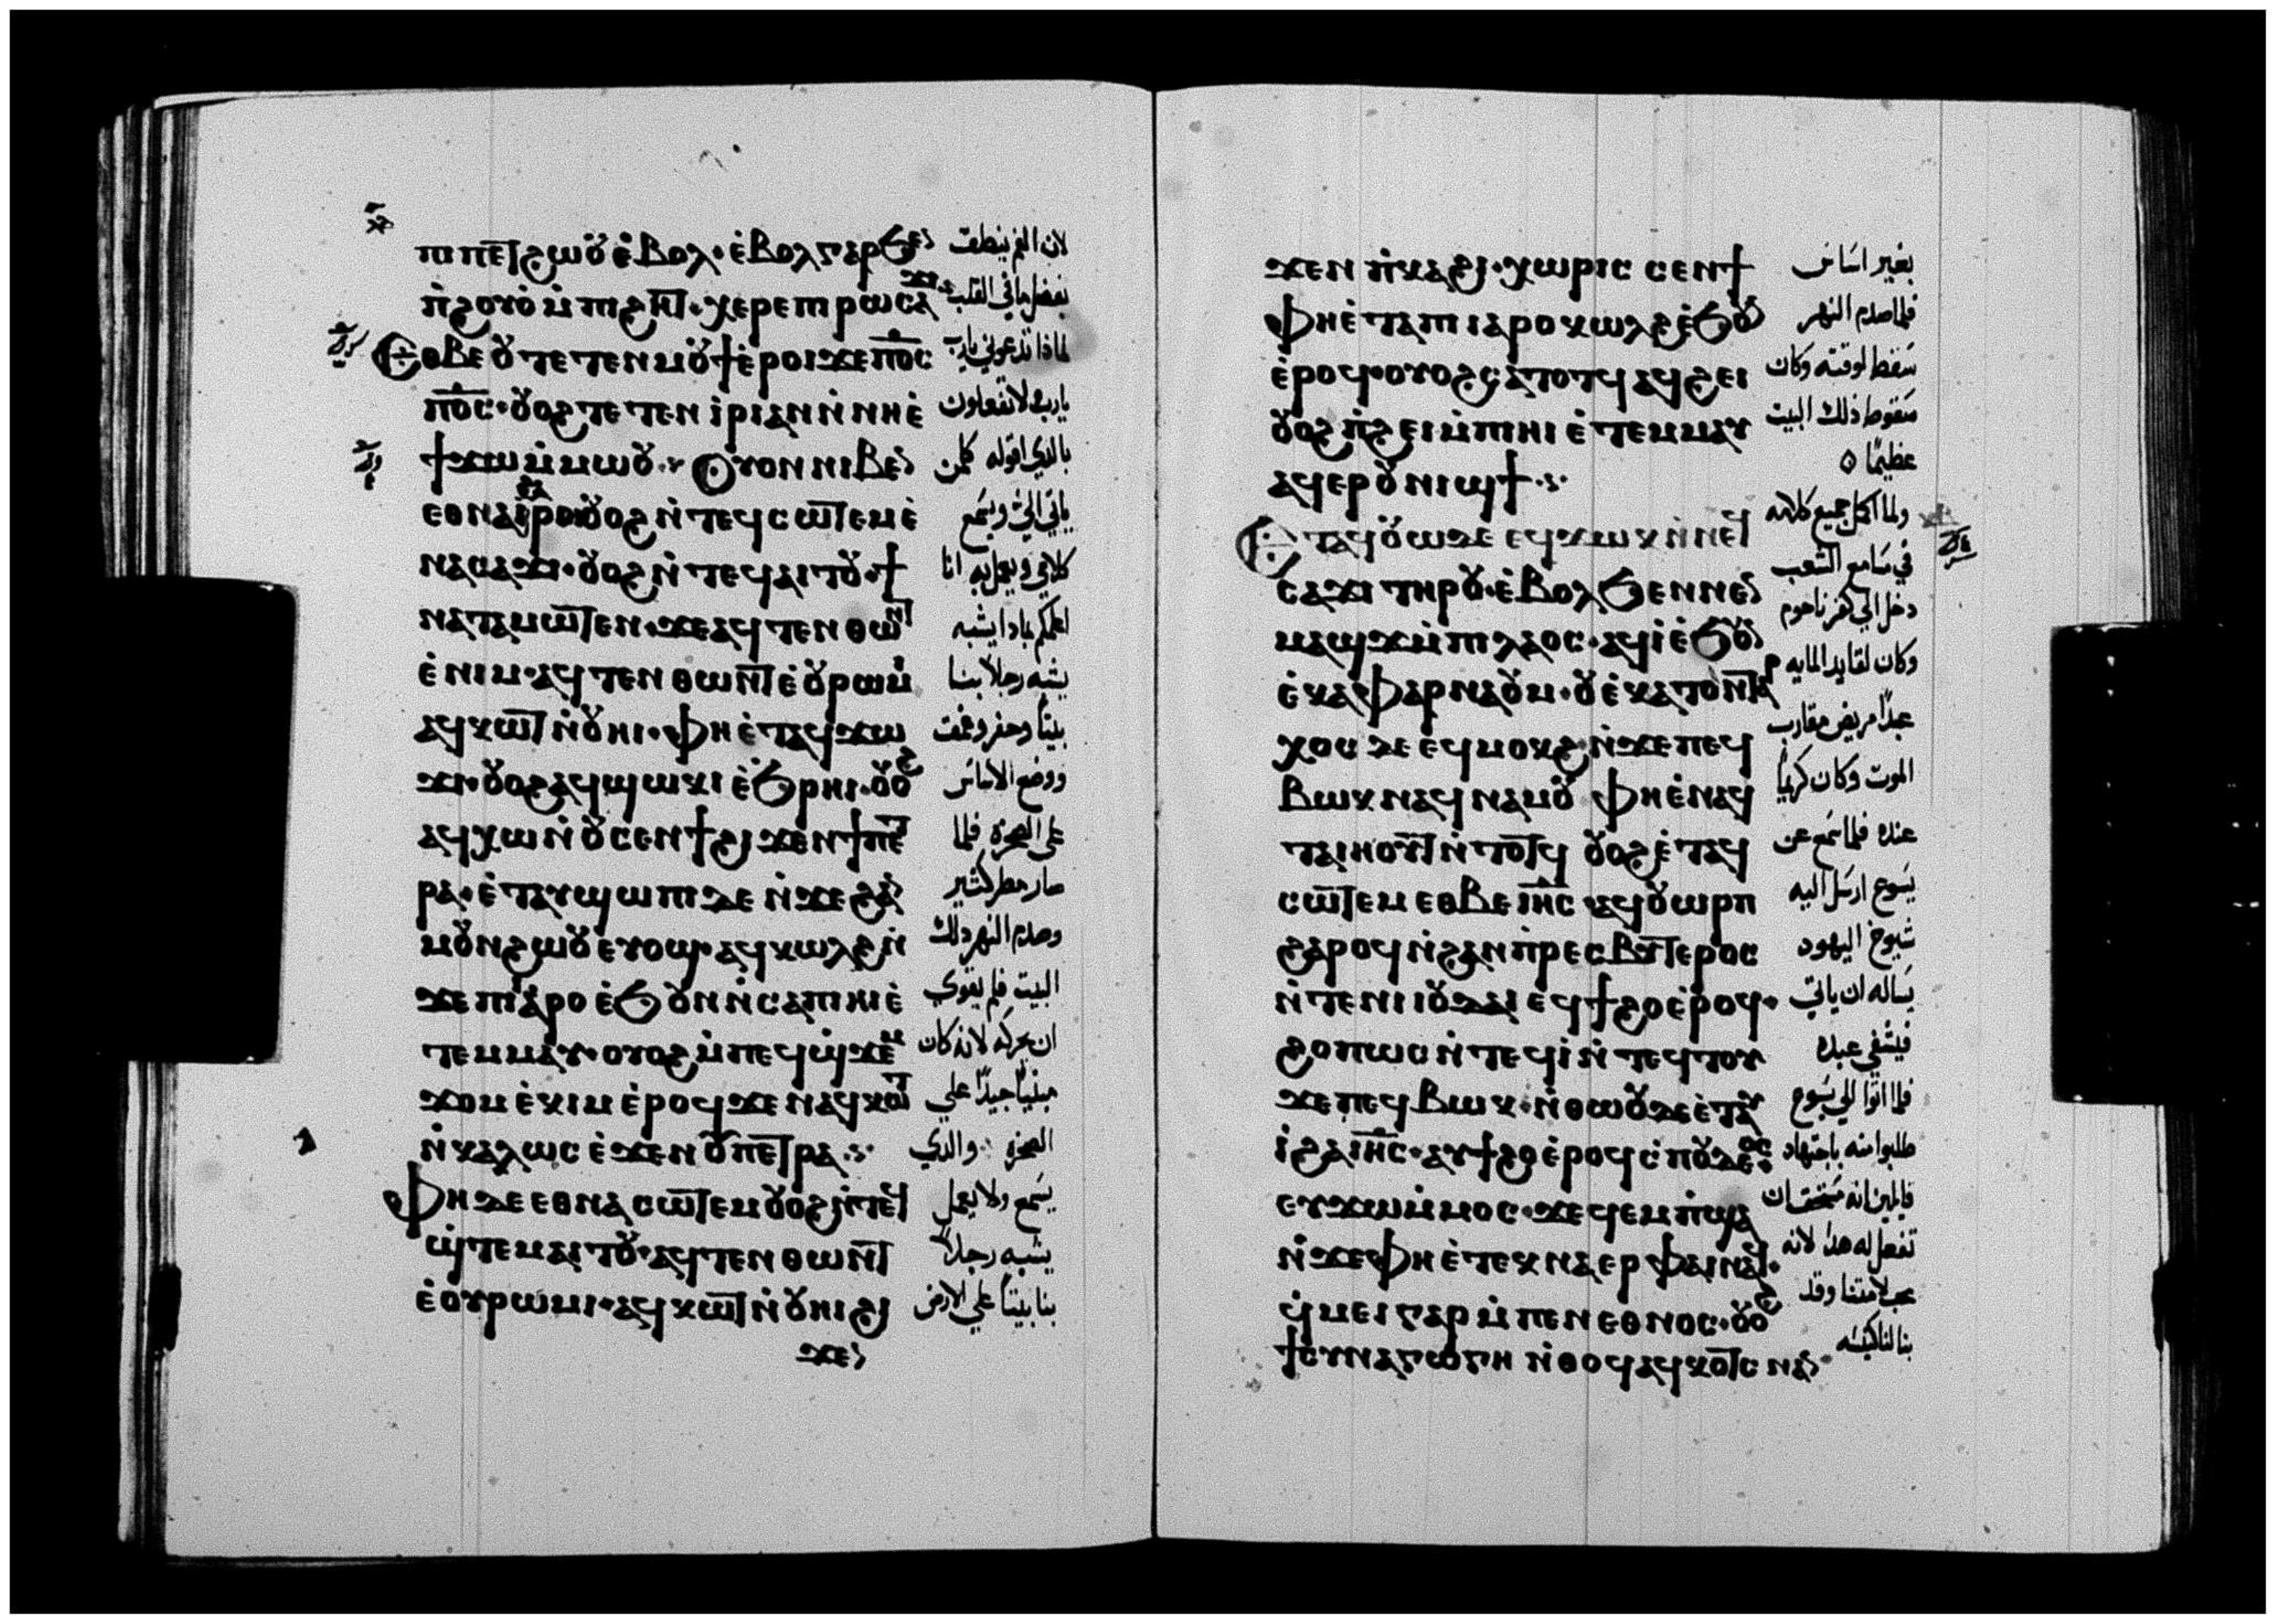 ⲡⲓⲡⲉⲧϩⲱⲟⲩ ⲉ̀ⲃⲟⲗ · ⲉ̀ⲃⲟⲗ ⲅⲁⲣ ϧⲉⲛ
ⲡ̀ϩⲟⲩⲟ̀ ⲙ̀ⲡⲓϩⲏⲧ · ϣⲁⲣⲉ ⲡⲓⲣⲱ ⲥⲁϫⲓ
Ⲉⲑⲃⲉ ⲟⲩ ⲧⲉⲧⲉⲛⲙⲟⲩϯ ⲉ̀ⲣⲟⲓ ϫⲉ ⲡⲟ̅ⲥ̅
ⲡⲟ̅ⲥ̅ · ⲟⲩⲟϩ ⲧⲉⲧⲉⲛⲓ̀ⲣⲓ ⲁⲛ ⲛ̀ⲛⲏ ⲉ̀
ϯϫⲱ ⲙ̀ⲙⲱⲟⲩ · Ⲟⲩⲟⲛ ⲛⲓⲃⲉⲛ
ⲉⲑⲛⲁⲓ̀ ϩⲁⲣⲟⲓ ⲟⲩⲟϩ ⲛ̀ⲧⲉϥⲥⲱⲧⲉⲙ ⲉ̀
ⲛⲁⲥⲁϫⲓ · ⲟⲩⲟϩ ⲛ̀ⲧⲉϥⲁⲓⲧⲟⲩ · ϯ
ⲛⲁⲧⲁⲙⲱⲧⲉⲛ · ϫⲉ ⲁϥⲧⲉⲛⲑⲱⲛⲧ
ⲉ̀ⲛⲓⲙ · ⲁϥⲧⲉⲛⲑⲱⲛⲧ ⲉ̀ⲟⲩⲣⲱⲙⲓ
ⲁϥⲕⲱⲧ ⲛ̀ⲟⲩⲏⲓ · ⲫⲏ ⲉ̀ⲧⲁϥϫⲱ
ϫⲓ · ⲟⲩⲟϩ ⲁϥϣⲱⲕⲓ ⲉ̀ϧⲣⲏⲓ · ⲟⲩⲟϩ
ⲁϥⲭⲱ ⲛ̀ⲟⲩⲥⲉⲛϯ ϩⲓϫⲉⲛ ϯⲡⲉⲧ
ⲣⲁ · ⲉ̀ⲧⲁⲩϣⲱⲡⲓ ⲇⲉ ⲛ̀ϫⲉ ϩⲁⲛ
ⲙⲟⲩⲛϩⲱⲟⲩ ⲉⲩⲟϣ · ⲁϥⲕⲱⲗϩ ⲛ̀
ϫⲉ ⲡⲓⲓⲁⲣⲟ ⲉ̀ϧⲟⲩⲛ ⲛ̀ⲥⲁ ⲡⲓⲏⲓ ⲉ̀
ⲧⲉⲙⲙⲁⲩ · ⲟⲩⲟϩ ⲙ̀ⲡⲉϥϣ̀ϫⲉⲙ
ϫⲟⲙ ⲉ̀ⲕⲓⲙ ⲉ̀ⲣⲟϥ ϫⲉ ⲛⲁϥⲕⲱⲧ
ⲛ̀ⲕⲁⲗⲱⲥ ⲉ̀ϫⲉⲛ ⲟⲩⲡⲉⲧⲣⲁ
Ⲫⲏ ⲇⲉ ⲉⲑⲛⲁⲥⲱⲧⲉⲙ ⲟⲩⲟϩ ⲛ̀ⲧⲉϥ
ϣ̀ⲧⲉⲙⲁⲓⲧⲟⲩ · ⲁϥⲧⲉⲛⲑⲱⲛⲧ
ⲉ̀ⲟⲩⲣⲱⲙⲓ · ⲁϥⲕⲱⲧ ⲛ̀ⲟⲩⲏⲓ ϩⲓ
ϫⲉⲛ
لان الفم ينطق
بفضل ما في القلب
لماذا تدعوني يارب
يارب ولا تفعلون
بالذي اقوله كلمن
ياتي الي ويسمع
كلامي ويعمل به انا
اعلمكم بماذا يشبه
يشبه رجلا بنا
بيتا وحفر وعمق
ووضع الاساس
على الصخرة فلما
صار مطر كثير
وصدم النهر ذلك
البيت فلم يقوي
ان يحركه لانه كان
مبنيا جيدا علي
الصخرة والذي
يسمع ولا يعمل
يشبه رجلا
بنا بيتا علي الارض
ϫⲉⲛ ⲡ̀ⲕⲁϩⲓ · ⲭⲱⲣⲓⲥ ⲥⲉⲛϯ
Ⲫⲏ ⲉ̀ⲧⲁ ⲡⲓⲓⲁⲣⲟ ⲕⲱⲗϩ ⲉ̀ϧⲟⲩⲛ
ⲉ̀ⲣⲟϥ · ⲟⲩⲟϩ ⲥⲁⲧⲟⲧϥ ⲁϥϩⲉⲓ
ⲟⲩⲟϩ ⲡ̀ϩⲉⲓ ⲙ̀ⲡⲓⲏⲓ ⲉ̀ⲧⲉⲙⲙⲁⲩ
ⲁϥⲉⲣⲟⲩⲛⲓϣϯ
Ⲉⲧⲁϥⲟⲩⲱ ⲇⲉ ⲉϥϫⲱⲕ ⲛ̀ⲛⲉϥ
ⲥⲁϫⲓ ⲧⲏⲣⲟⲩ · ⲉ̀ⲃⲟⲗ ϧⲉⲛ ⲛⲉⲛ
ⲙⲁϣϫ ⲙ̀ⲡⲓⲗⲁⲟⲥ · ⲁϥⲓ̀ ⲉ̀ϧⲟⲩⲛ
ⲉ̀ⲕⲁⲫⲁⲣⲛⲁⲟⲩⲙ · ⲟⲩⲉ̀ⲕⲁⲧⲟⲛⲧⲁⲣ
ⲭⲟⲥ ⲇⲉ ⲉϥⲙⲟⲕϩ ⲛ̀ϫⲉ ⲡⲉϥ
ⲃⲱⲕ ⲛⲁϥⲛⲁⲙⲟⲩ ⲫⲏ ⲉ̀ⲛⲁϥ
ⲧⲁⲓⲏⲟⲩⲧ ⲛ̀ⲧⲟⲧϥ ⲟⲩⲟϩ ⲉ̀ⲧⲁϥ
ⲥⲱⲧⲉⲙ ⲉⲑⲃⲉ ⲓⲏ̅ⲥ̅ ⲁϥⲟⲩⲱⲣⲡ
ϩⲁⲣⲟϥ ⲛ̀ϩⲁⲛⲡ̀ⲣⲉⲥⲃⲩⲧⲉⲣⲟⲥ
ⲛ̀ⲧⲉ ⲛⲓⲓⲟⲩⲇⲁⲓ ⲉϥϯϩⲟ ⲉ̀ⲣⲟϥ ·
ϩⲟⲡⲱⲥ ⲛ̀ⲧⲉϥⲓ̀ ⲛ̀ⲧⲉϥⲧⲟⲩ
ϫⲉ ⲡⲉϥⲃⲱⲕ · ⲛ̀ⲑⲱⲟⲩ ⲇⲉ ⲉ̀ⲧⲁⲩ
ⲓ̀ ϩⲁ ⲓⲏ̅ⲥ̅ · ⲁⲩϯϩⲟ ⲉ̀ⲣⲟϥ ⲥ̀ⲡⲟⲩⲇⲉⲟⲥ
ⲉⲩϫⲱ ⲙ̀ⲙⲟⲥ · ϫⲉ ϥⲉⲙⲡ̀ϣⲁ
ⲛ̀ϫⲉ ⲫⲏ ⲉ̀ⲧⲉⲕⲛⲁⲉⲣ ⲫⲁⲓ ⲛⲁϥ ·
ϥ̀ⲙⲉⲓ ⲅⲁⲣ ⲙ̀ⲡⲉⲛⲉⲑⲛⲟⲥ · ⲟⲩⲟϩ
ϯⲥⲩⲛⲁⲅⲱⲅⲏ ⲛ̀ⲑⲟϥ ⲁϥⲕⲟⲧⲥ ⲛⲁⲛ
بغير اساس
فلما صدم النهر
سقط لوقته وكان
سقوط ذلك البيت
عظيما
ولما اكمل جميع كلامه
في مسامع الشعب
دخل الي كفرناحوم
وكان لقايد المايه
عبدا مريض مقارب
الموت وكان كريما
عنده فلما سمع عن
يسوع ارسل اليه
شيوخ اليهود
يساله ان ياتي
فيشفي عبده
فلما اتوا الي يسوع
طلبوا منه باجتهاد
قايلين انه مستحق ان
تفعل له هذا لانه
محب لامتنا وقد
بنا لنا كنيسه